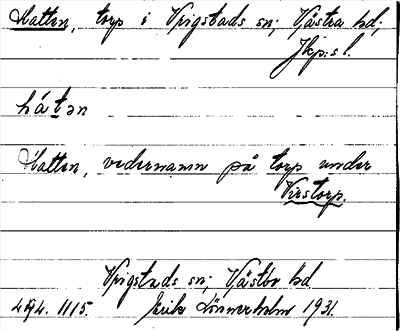 Hatten, torp i Vrigstads sn; Västra hd;
Jkp:s l.
hátən
Hatten, vedernamn på torp under
Virstorp.
Vrigstads sn; Västbo hd
494. 1115. Erik Lönnerholm 1931.